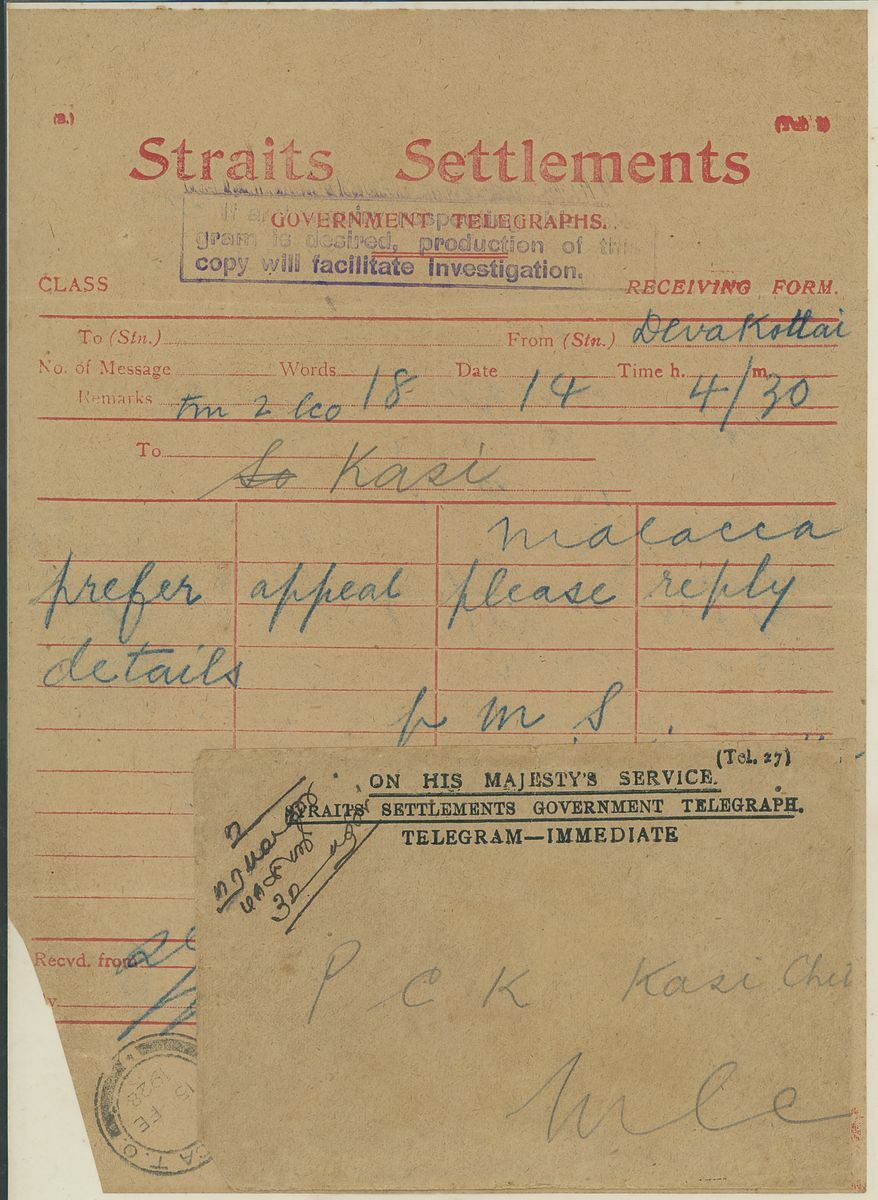 (B.)
Straits Settlements
GOVERNMENT TELEGRAPHS.
gram is desired, production of this
copy will facilitate investigation.
CLASS
RECEIVING FORM.
To (Stn.) From (Stn.) Devakottai
No. of Message Words Date Time h. m.
Remarks 18 14 4/30
To Kasi
malacca
prefer appeal please reply
details
p m S
Recvd. from
15
FE
1928
(Tel. 27)
ON HIS MAJESTY'S SERVICE.
STRAITS SETTLEMENTS GOVERNMENT TELEGRAPH.
TELEGRAM—IMMEDIATE
P C K Kasi